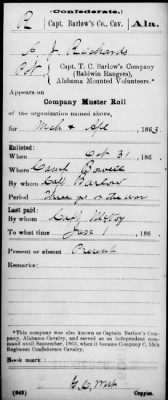 (Confederate.)
R Capt. Barlow's Co., Cav. Ala.
A. J. Richards
Pvt, Capt. T. C. Barlow's Company
(Baldwin Rangers),
Alabama Mounted Volunteers.*
Appears on
Company Muster Roll
of the organization named above,
for Mch & Apl, 1863.
Enlisted:
When Oct 31, 186
Where Camp Powell
By whom Capt Barlow
Period three yrs or the war
Last paid:
By whom Capt
To what time Jan 1, 186
Present or absent Present
Remarks:
*This company was also known as Captain Barlow's Company, Alabama Cavalry, and served as an independent command until September, 1863, when it became Company C, 15th Regiment Confederate Cavalry.
Book mark:
(642) Copyist.